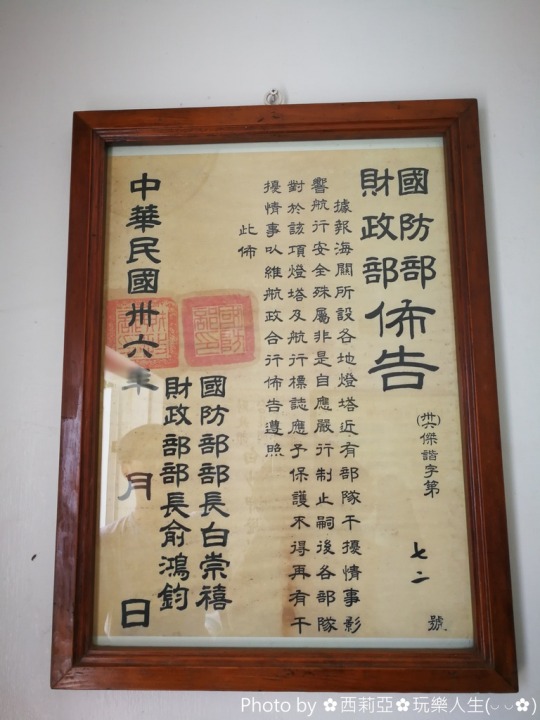 國防部
財政部
佈告
(卅六)傑諧字第 七二 號
據報海關所設各地燈塔近有部隊干擾情事影
響航行安全殊屬非是自應嚴行制止嗣後各部隊
對於該項燈塔及航行標誌應予保護不得再有干
擾情事以維航政合行佈告遵照
此佈
國防部部長白崇禧
財政部部長俞鴻鈞
中華民國卅六年 月 日
Photo by ✿西莉亞✿玩樂人生(◡◡✿)